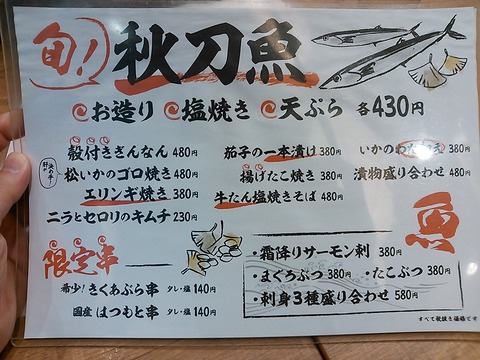 旬!
秋刀魚
お造り 塩焼き 天ぷら 各430円
殻付きぎんなん 480円
松いかのゴロ焼き 480円
エリンギ焼き 380円
ニラとセロリのキムチ 230円
茄子の一本漬け 380円
揚げたこ焼き 380円
牛たん塩焼きそば 480円
いかのわた 380円
漬物盛り合わせ 480円
限定串
希少!きくあぶら串 タレ・塩 140円
国産 はつもと串 タレ・塩 140円
魚
・霜降りサーモン刺 380円
・まぐろぶつ 380円 ・たこぶつ 380円
・刺身3種盛り合わせ 580円
すべて税抜き価格です